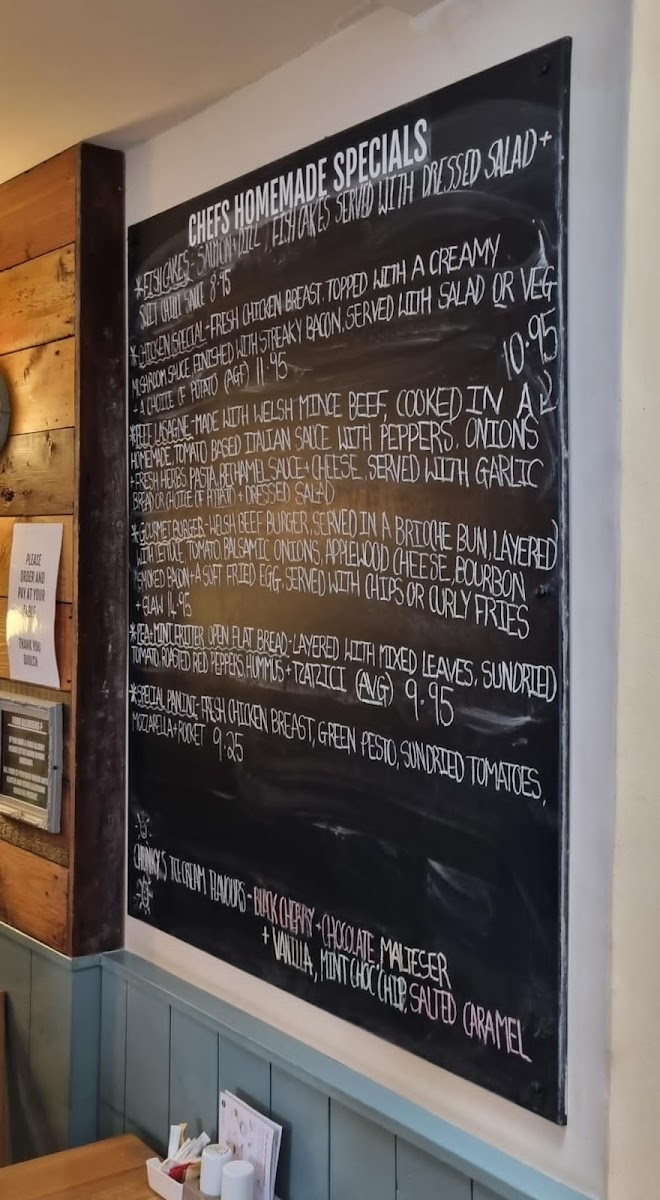 CHEFS HOMEMADE SPECIALS
*FISHCAKES - SALMON + DILL, FISHCAKES SERVED WITH DRESSED SALAD +
SWEET CHILLI SAUCE 8.95
*CHICKEN SPECIAL - FRESH CHICKEN BREAST, TOPPED WITH A CREAMY
MUSHROOM SAUCE, FINISHED WITH STREAKY BACON, SERVED WITH SALAD OR VEG
+ A CHOICE OF POTATO (AGF) 11.95
10.95
*BEEF LASAGNE - MADE WITH WELSH MINCE BEEF, COOKED IN A
HOMEMADE, TOMATO BASED ITALIAN SAUCE WITH PEPPERS, ONIONS
+ FRESH HERBS, PASTA, BECHAMEL SAUCE + CHEESE, SERVED WITH GARLIC
BREAD OR CHOICE OF POTATO + DRESSED SALAD
*GOURMET BURGER - WELSH BEEF BURGER, SERVED IN A BRIOCHE BUN, LAYERED
WITH LETTUCE, TOMATO, BALSAMIC ONIONS, APPLEWOOD CHEESE, BOURBON
SMOKED BACON + A SOFT FRIED EGG, SERVED WITH CHIPS OR CURLY FRIES
+ SLAW 14.95
*PEA + MINT FRITTER OPEN FLAT BREAD - LAYERED WITH MIXED LEAVES, SUNDRIED
TOMATO, ROASTED RED PEPPERS, HUMMUS + TZATZICI (AVG) 9.95
*SPECIAL PANINI: FRESH CHICKEN BREAST, GREEN PESTO, SUNDRIED TOMATOES,
MOZZARELLA + ROCKET 9.25
ICE CREAM FLAVOURS - BLACK CHERRY + CHOCOLATE, MALTESER
+ VANILLA, MINT CHOC CHIP, SALTED CARAMEL
PLEASE
ORDER AND
PAY AT YOUR
TABLE
THANK YOU
FOOD ALLERGIES?